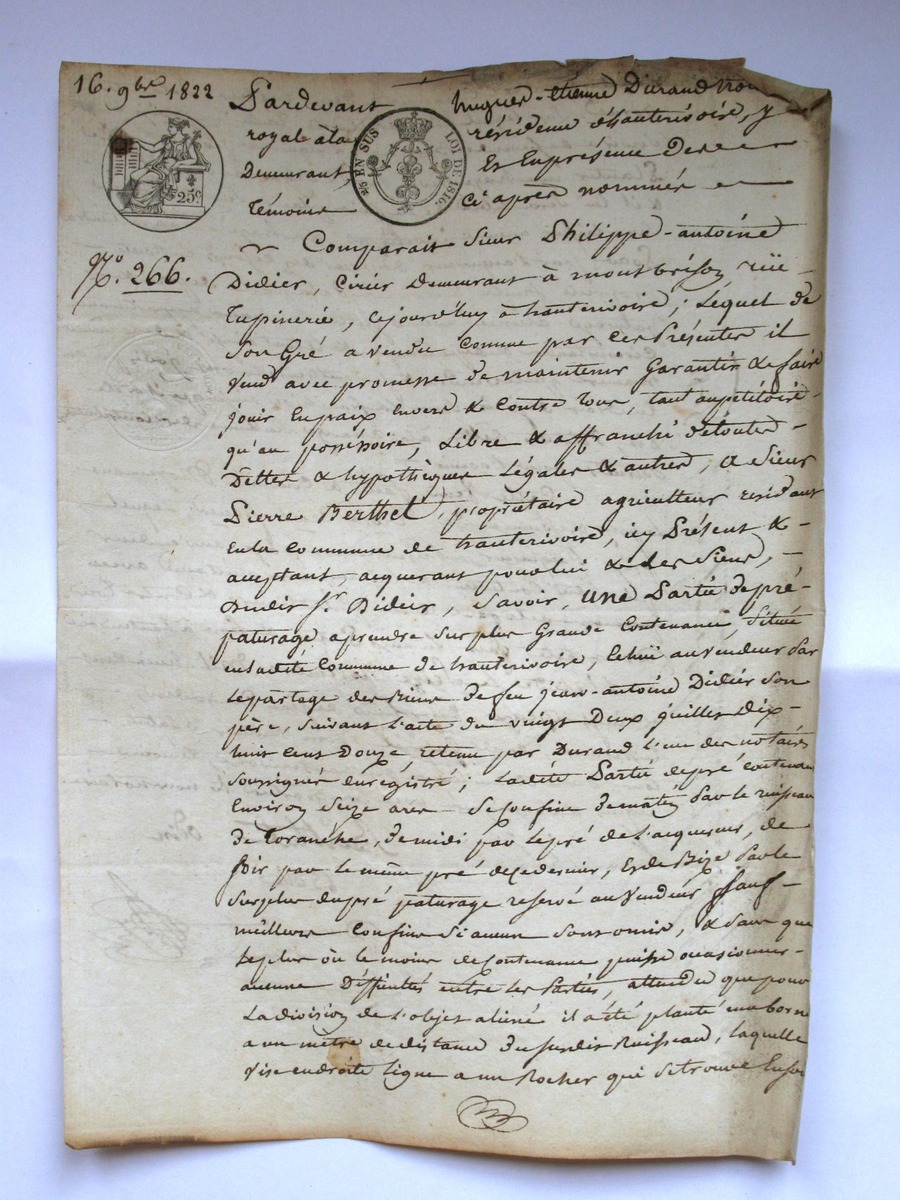 16. 9bre 1822
Pardevant hugues-étienne Durand
royal à la résidence d'hauterivoire, y
Demeurant, Et En présence Des
témoins ci après nommés
25c
25c EN SUS LOI DE 1816.
N.o 266.
Comparait Sieur Philippe-antoine
Didier, cirier Demeurant à montbrison, rüe
tupinerie, cejourd'huy à hauterivoire; Lequel de
Son Gré a vendu comme par ces Présentes il
Vend avec promesse de maintenir Garantir & faire
jouir En paix Envers & Contre tous, tant au pétitoire
qu'au possessoire, Libre & affranchi de toutes
Dettes & hypothèques Légales & autres, a Sieur
Pierre Berthet, propriétaire agriculteur residant
En la Commune de hauterivoire, icy Présent &
acceptant, acquerant pour lui & Les Siens,
Dudit Sr. Didier, Savoir, Une Partie de pré
paturage a prendre sur plus Grande Contenance, Située
en ladite Commune de hauterivoire, Echüe au vendeur Par
le partage des Biens de feu jean-antoine Didier Son
père, suivant l'acte du vingt Deux juillet dix
huit cent Douze, retenu par Durand l'un des notaires
soussignés Enregistré; Ladite Partie de pré contenant
Environ Seize ares Se Confine de matin Par le ruisseau
de Toranche, de midi par le pré de l'acquereur, de
Soir par le même pré de ce dernier, & de Bize Par le
Surplus du pré paturage reservé au Vendeur Sauf
meilleurs Confins Si aucun Sont omis, & Sans que
le plus où le moins de Contenance puisse occasionner
aucune Difficultés entre Les Parties, attendu que pour
La division de L'objet aliéné il a été planté une borne
a un mètre de distance du susdit Ruisseau, laquelle
Vise en droite ligne a un Rocher qui se trouve